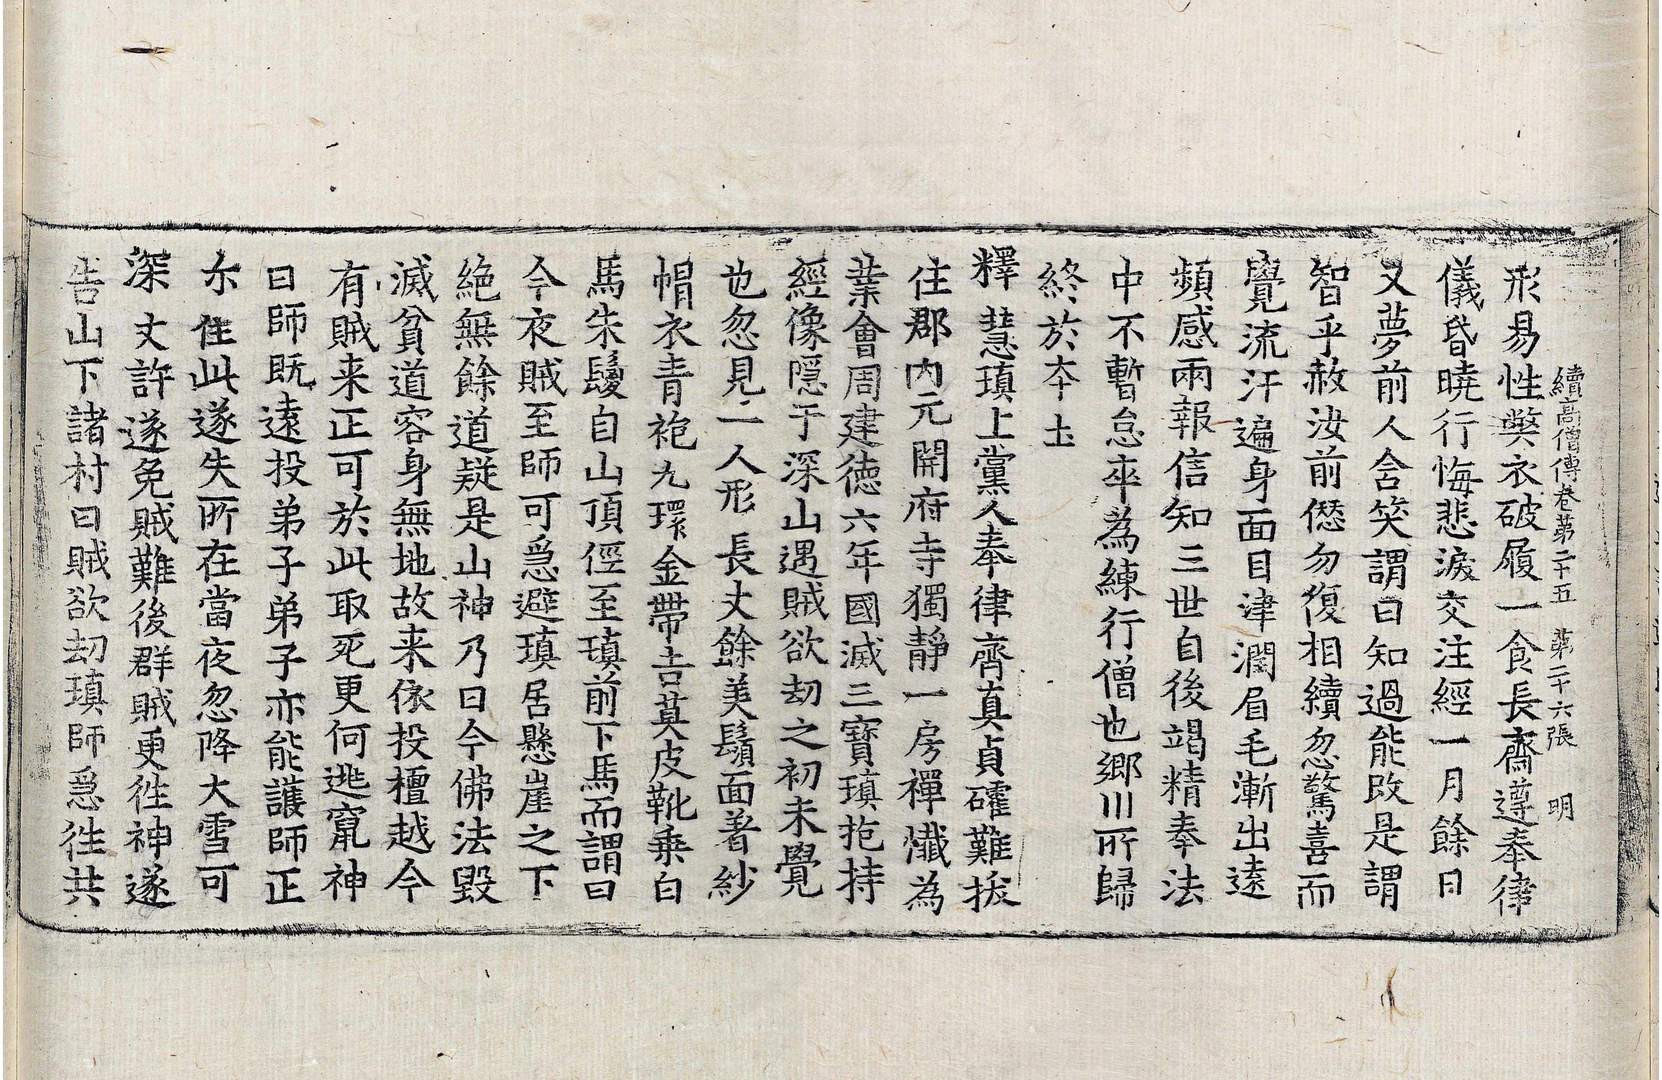 續高僧傳卷第二十五　第二十六張　明
形易性獘衣破履一食長齋遵奉律
儀昏曉行悔悲淚交注經一月餘日
又夢前人含笑謂曰知過能改是謂
智乎赦汝前愆勿復相續忽驚喜而
覺流汗遍身面目津潤眉毛漸出遠
頻感兩報信知三世自後竭精奉法
中不暫怠卒為練行僧也鄉川所歸
終於夲土
釋慧瑱上黨人奉律齊真貞確難拔
住郡內元開府寺獨靜一房禪懺為
業會周建德六年國滅三寶瑱抱持
經像隱于深山遇賊欲劫之初未覺
也忽見一人形長丈餘美鬚面著紗
帽衣青袍九環金帶吉莫皮靴乗白
馬朱鬉自山頂徑至瑱前下馬而謂曰
今夜賊至師可急避瑱居懸崖之下
絕無餘道疑是山神乃曰今佛法毀
滅貧道容身無地故来依投檀越今
有賊来正可於此取死更何逃竄神
曰師既遠投弟子弟子亦能護師正
尒住此遂失所在當夜忽降大雪可
深丈許遂免賊難後群賊更往神遂
告山下諸村曰賊欲劫瑱師急往共